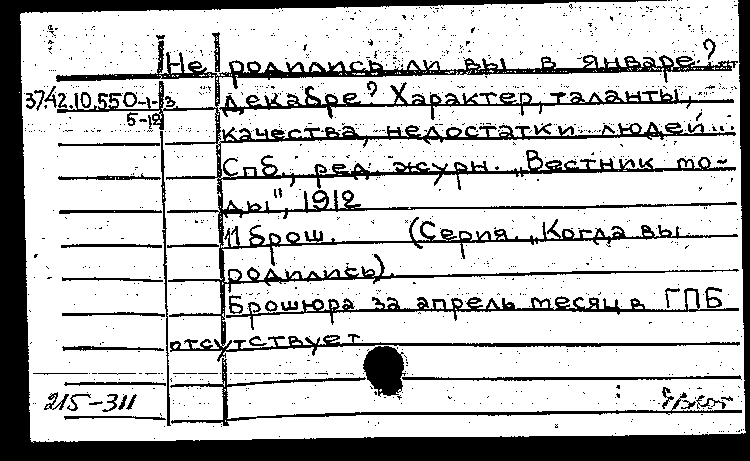 Не родились ли вы в январе?...
37.42.10.550-1-3 декабре? Характер, таланты,
5-12
качества, недостатки людей...
Спб., ред. журн. „Вестник мо-
ды", 1912
11 брош. (Серия. „Когда вы
родились).
Брошюра за апрель месяц в ГПБ
отсутствует
215-311